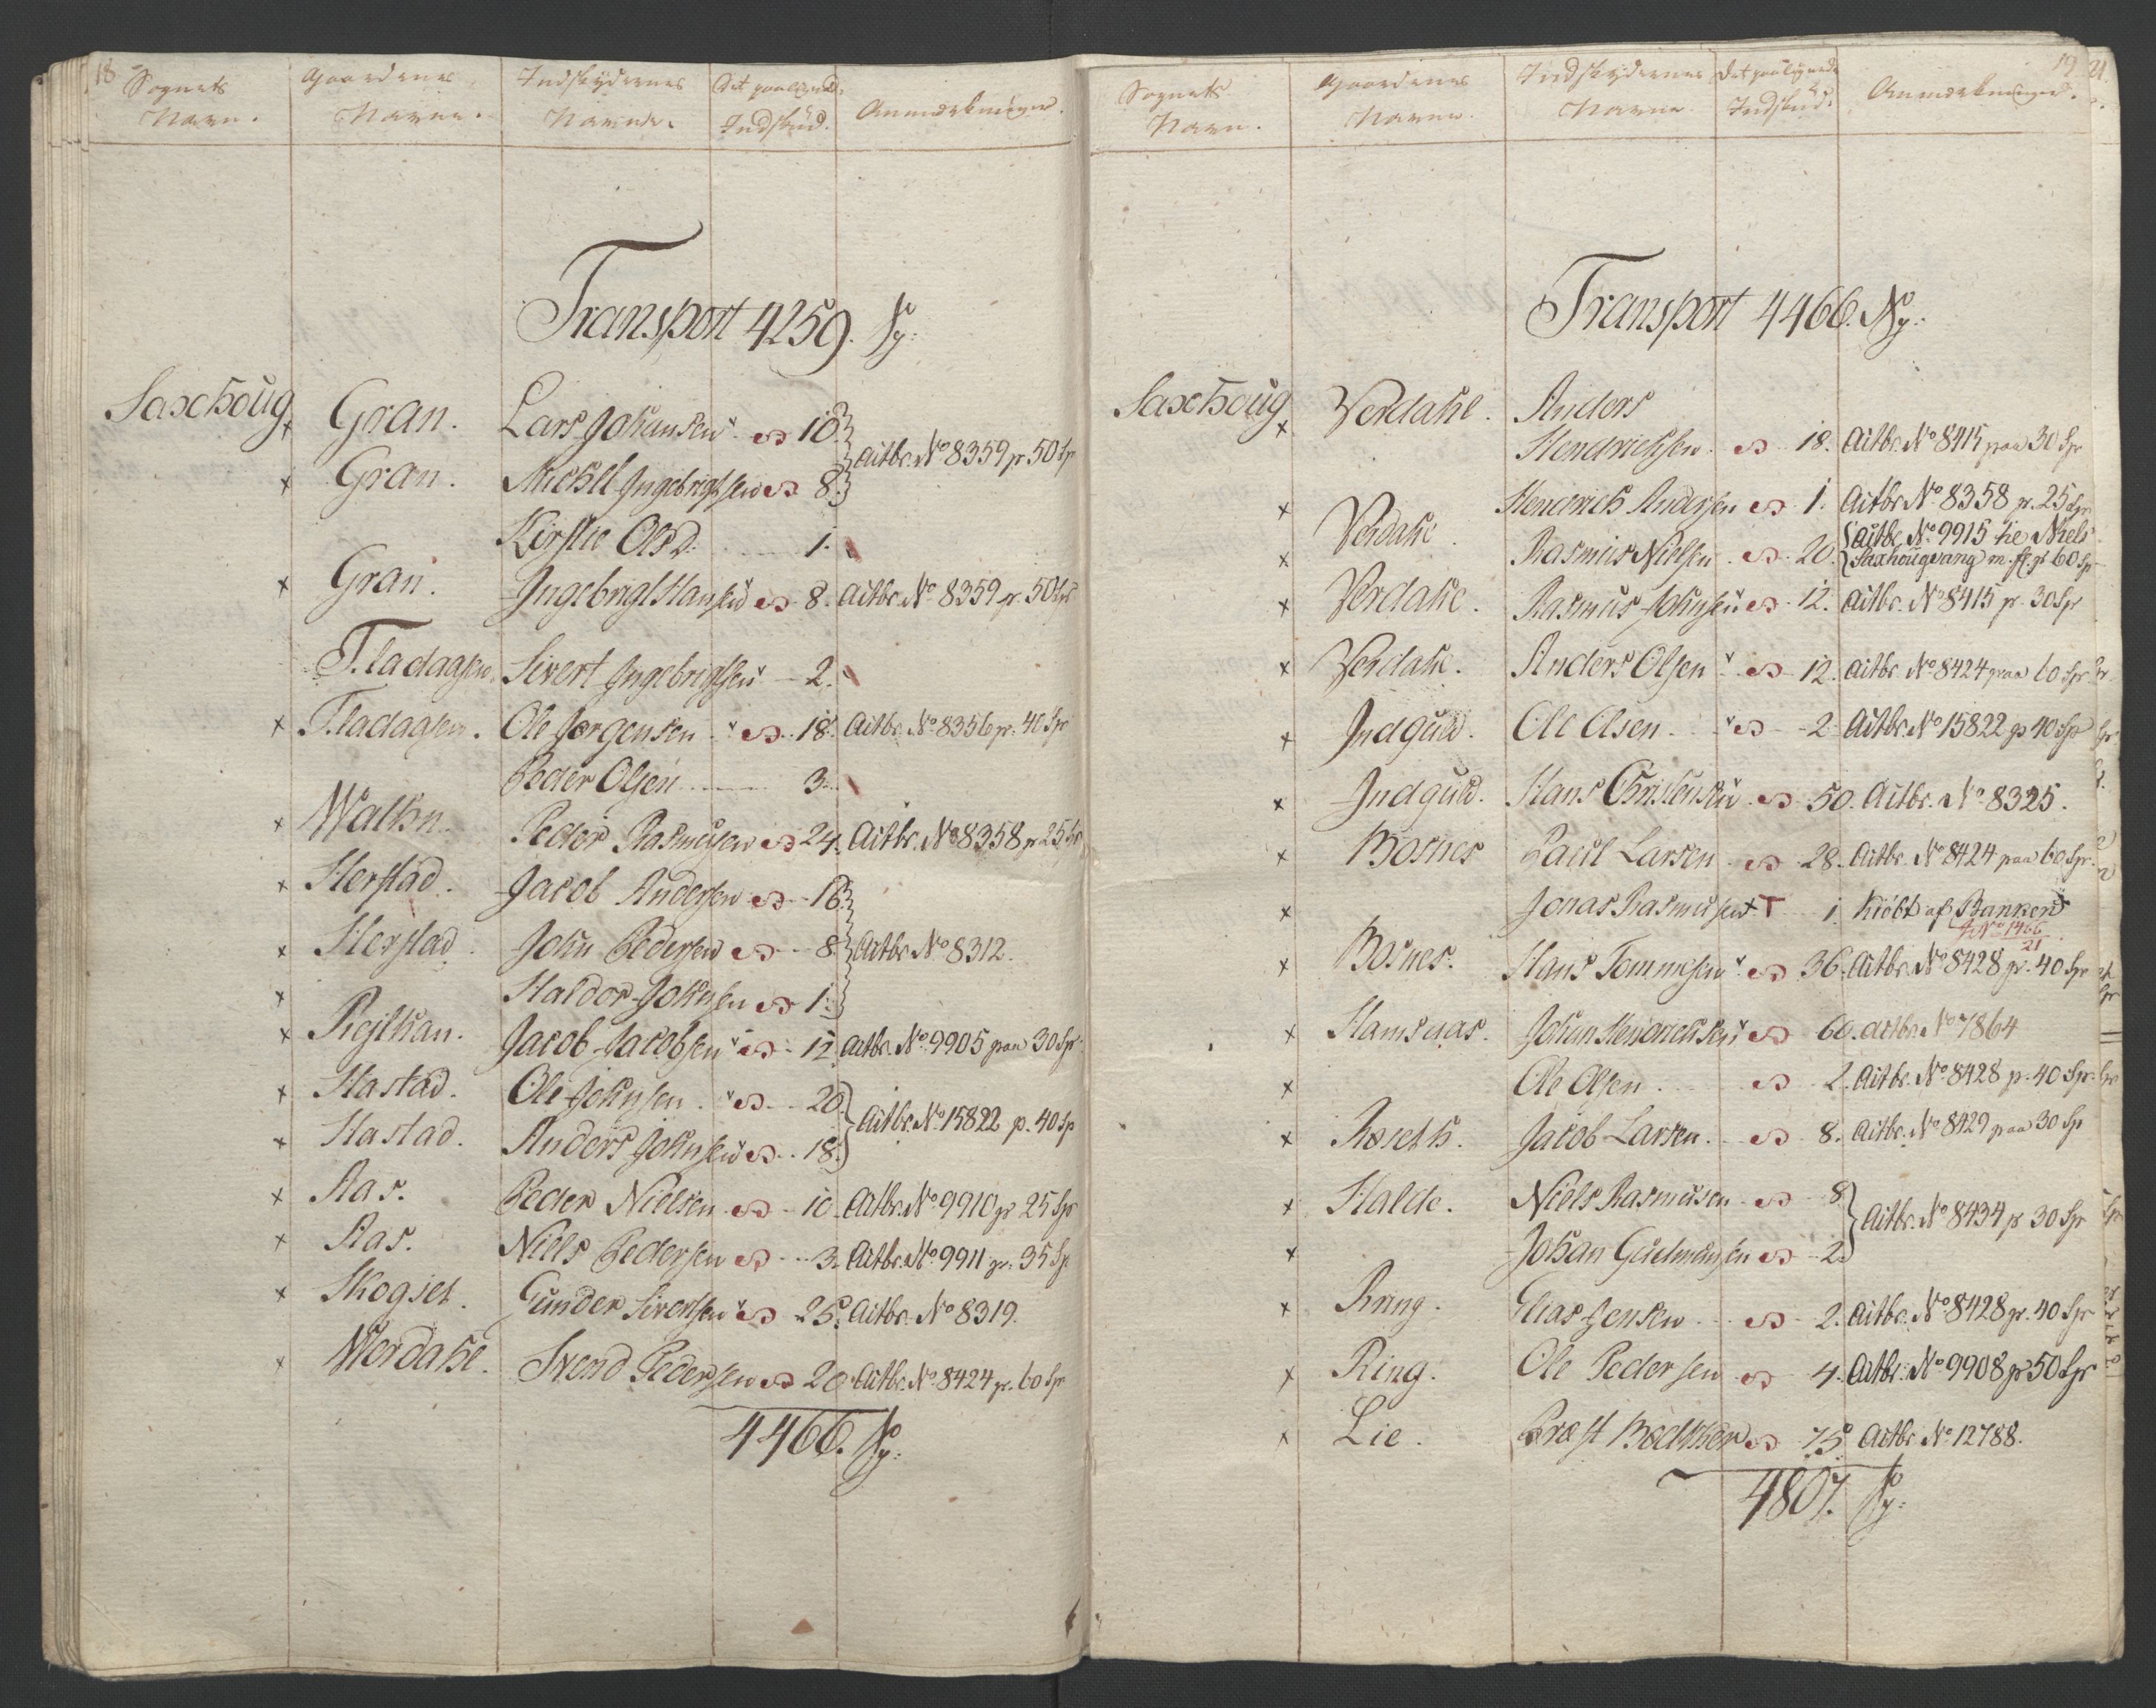 18
Sognets Navn. Gaardenes Navne. Indskydernes Navne. Det paalignede Indskud. Anmærkninger.
Transport 4259. Sp:
Saxhoug x Gran. Lars Johansen 10. Aitbr. No 8359 pr 50 Sp
x Gran. Michel Ingebrigtsen 8.
Kirstie Olsd. 1.
x Gran. Ingebrigt Hansen 8. Aitbr. No 8359 pr. 50 Sp
Fladaasen. Sivert Ingebrigtsen 2.
x Fladaasen. Ole Jørgensen 18. Aitbr. No 8356 pr. 40 Sp
Peder Olsen 3.
x Walhn. Peder Rasmusen 24. Aitbr. No 8358 pr 25 Sp
x Herstad. Jacob Andersen 16.
x Herstad. John Pedersen 8. Aitbr No 8312.
x Haldor Johnsen 1.
x Rejlhan. Jacob Jacobsen 12. Aitbr. No 9905 paa 30 Sp
x Hastad. Ole Johnsen 20. Aitbr. No 15822 p. 40 Sp
x Hastad. Anders Johnsen 18.
x Aas. Peder Nielsen 10. Aitbr. No 9910 pr 25 Sp
x Aas. Niels Pedersen 3. Aitbr. No 9911 pr. 35 Sp
x Skogset. Gunder Sivertsen 25. Aitbr. No 8319.
x Werdahl. Svend Pedersen 20. Aitbr. No 8424 pr. 60 Sp
4466. Sp:
19
Sognets Navn. Gaardenes Navne. Indskydernes Navne Det paalignede Indskud. Anmærkninger.
Transport 4466. Sp:
Saxhoug x Verdahl. Anders
Hendrichsen 18. Aitbr. No 8415 paa 30 Sp
x Hendrich Andersen 1. Aitbr No 8358 pr. 25 Sp
Verdahl. Aitbr. No 9915 Niels
x Rasmus Nielsen 20. Saxhougvang m. fl. pr 60 Sp
x Verdahl. Rasmus Johnsen 12. Aitbr. No 8415 pr. 30 Sp
x Verdahl. Anders Olsen 12. Aitbr No 8424 paa 60 Sp
x Indguld. Ole Olsen. 2. Aitbr. No 15822 pr 40 Sp
x Indguld. Hans Christensen 50. Aitbr. No 8325.
x Bosnes Paul Larsen 28. Aitbr. No 8424 paa 60 Sp.
x Jonas Rasmusen x T 1. Kiöbt af Banken
No 1466
21
x Bosnes. Hans Tommesen 36. Aitbr. No 8428 pr. 40 Sp
x Hamsnas. Johan Hendrichsen 60. Aitbr. No 7864
x Ole Olsen. 2. Aitbr. No 8428 p. 40 Sp.
x Røseth. Jacob Larsen. 8. Aitbr. No 8429 paa 30 Sp
x Halde. Niels Rasmusen 8. Aitbr. No 8434 pr 30 Sp
x Johan Gudmundsen 2.
x Ring. Elias Jensen 2. Aitbr. No 8428 pr. 40 Sp
x Ring. Ole Pedersen 4. Aitbr. No 9908 pr 50 Sp
x Lie. Præst 75. Aitbr No 12788.
4807. Sp: